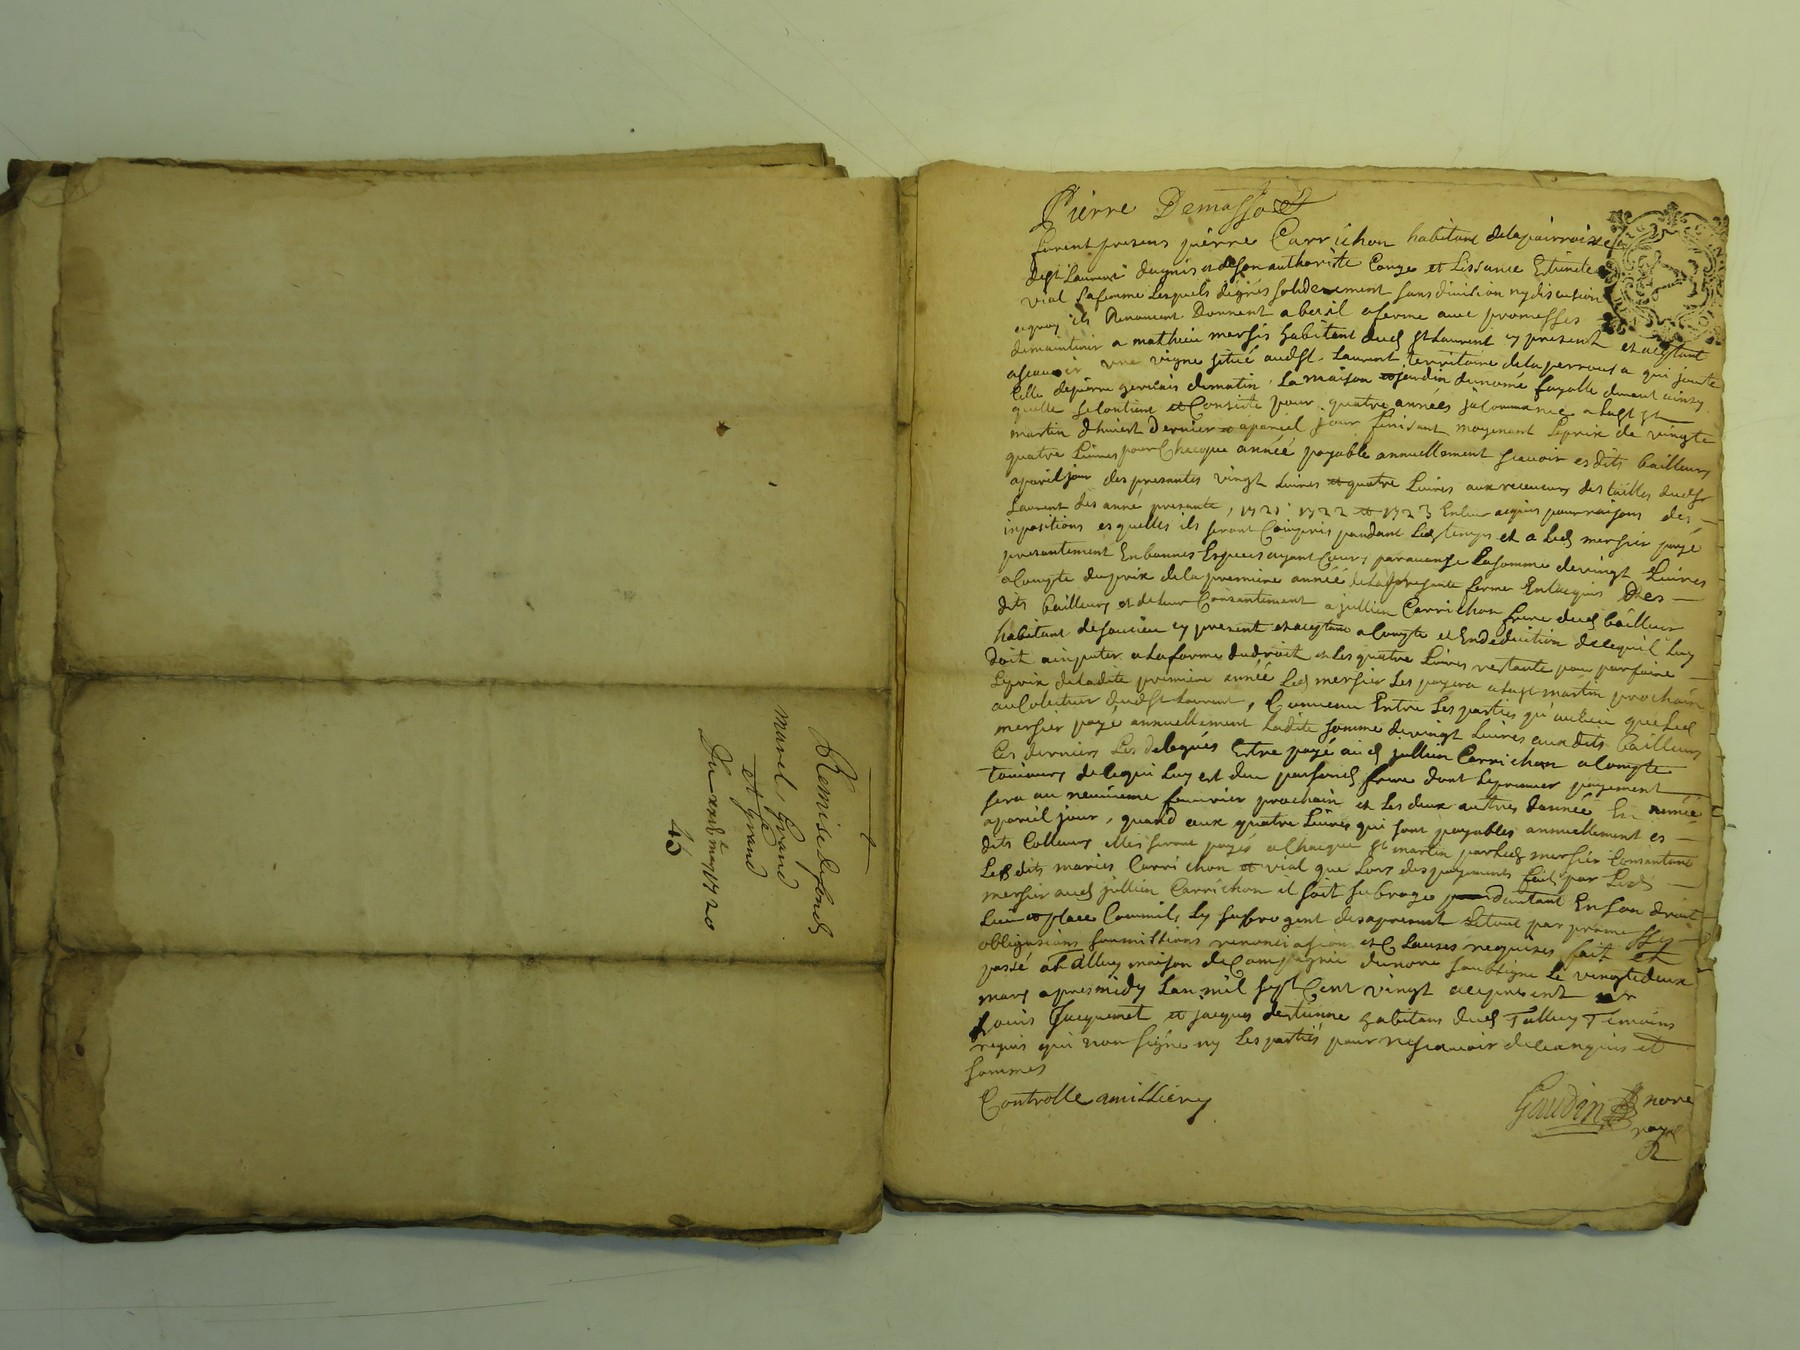 Remise de fonds
marcel Grand
et Grand
Du xxii.e may 1720
45
Pierre Demasso
furent presens pierre Carrichon habitant dela pairroisse
de St Laurent dagnis et deson authorité Conge et Lissance Estinete
vial safemme Lesquels dégrés soliderement sans division ny discution
aquoy ils Renoncent Donnent a beril aferme avec promesses
demaintenir a mathieu mersis habitant dud St Laurent cy present et aceptant
ascauoir vne vigne situé audst. Laurent territoire dela perrousa qui jouite
Celle depierre gervais dematin. La maison et jardin dunomé fayolle duvent ainsy
quelle se Contient et Consiste pour quatre années ja Commancé a la st
martin dhiuert Dernier et apareil jour finissant moyenant Leprix de vingte
quatre Liures pour Chacque année payable annuellement scauoir esdits bailleurs
apareil jour des presantes vingt Liures et quatre Liures aux receueurs des tailles dudst
Laurent des anné presante, 1721. 1722 et 1723 Enleur aquis pour raisons des
inpositions esquelles ils seront Compris pandant Led temps et a Led mersier payé
presantement En bonnes Especes ayant Cours par auanse La somme de vingt Liures
a Compte du prix de la premiere année de La presante ferme En Lacquis Des
dits bailleurs et de leur Consantement a jullien Carrichon frere dud bailleur
habitant de soucieu cy present et aceptant a Compte et En deduction de cequil Luy
doit a inputer a La forme du droit et Les quatre Liures restante pour parfaire
Leprix deladite premiere année Led mersier Les payera a la st martin prochain
au Colecteur dudst Laurent, Conuenu Entre Les parties qu'au lieu que Led
mersier paye annuellement Ladite somme devingt Liures aux dits bailleurs
Ces derniers Les delegués Estre payé aud jullien Carrichon a Compte
toujours de cequi Luy est deu par sond frere dont Le premier payement
sera au neuuieme feuurier prochain et Les deux autres dannée En année
apareil jour, quand aux quatre Liures qui sont payables annuellement es
dits Colleurs elles seront payés a Chacque St martin par Led mersier Consantant
Lesdits mariés Carrichon et vial que Lors des payements fait par Led
mersier aud jullien Carrichon il soit subrogé pour dautant En son droit
Lieu et place Comme ils Ly subrogent desapresant Et tout par promesses
obligassions soumissions renonciasions et Clauses requises fait et
passé a Talluy maison de Campagnie du nore soubsigné Le vingtedeux
mars apres midy Lan mil sept Cent vingt
Louis Jacquemet et jacques destienne habitans dud Talluy Temoins
requis qui non signé ny Les partiés pour ne scauoir de ce enquis et
sommes
Controlle a milliery
Gaudin nore
royal